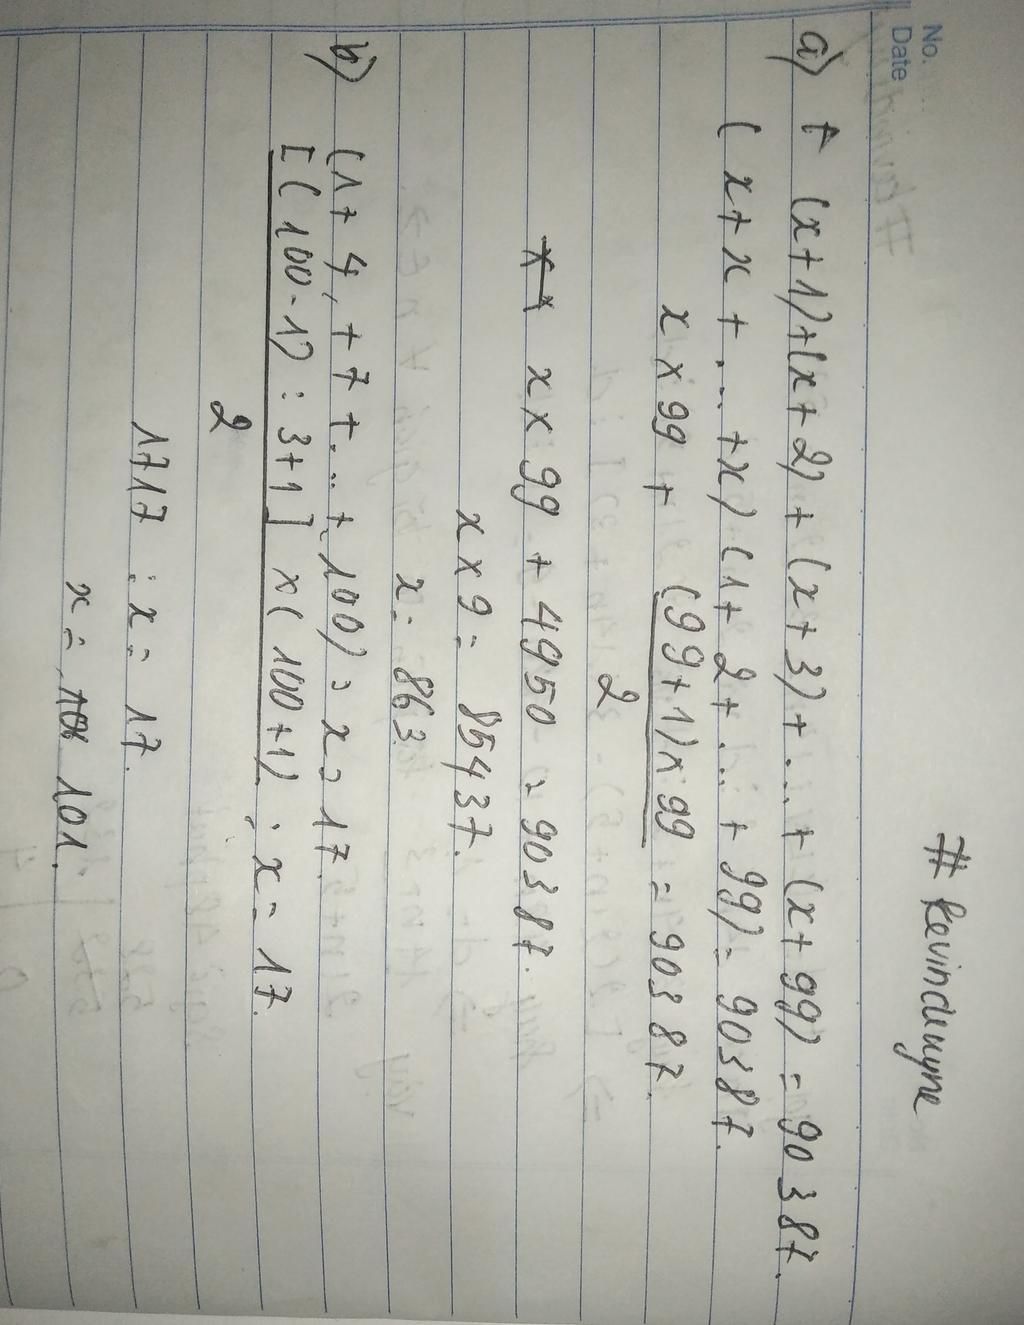 No.
Date
# kevindemyne
a) (x+1)+(x+2)+(x+3)+...+(x+99) = 90387.
(x+x+...+x) (1+2+...+99) = 90387.
x x 99 + (99+1)x99 / 2 = 90387.
x x 99 + 4950 = 90387.
x x 9 = 85437.
x = 863.
b) (1+4+7+...+100) = x = 17.
[(100-1):3+1] x (100+1) / 2 : x = 17.
1717 : x = 17.
x = 101.